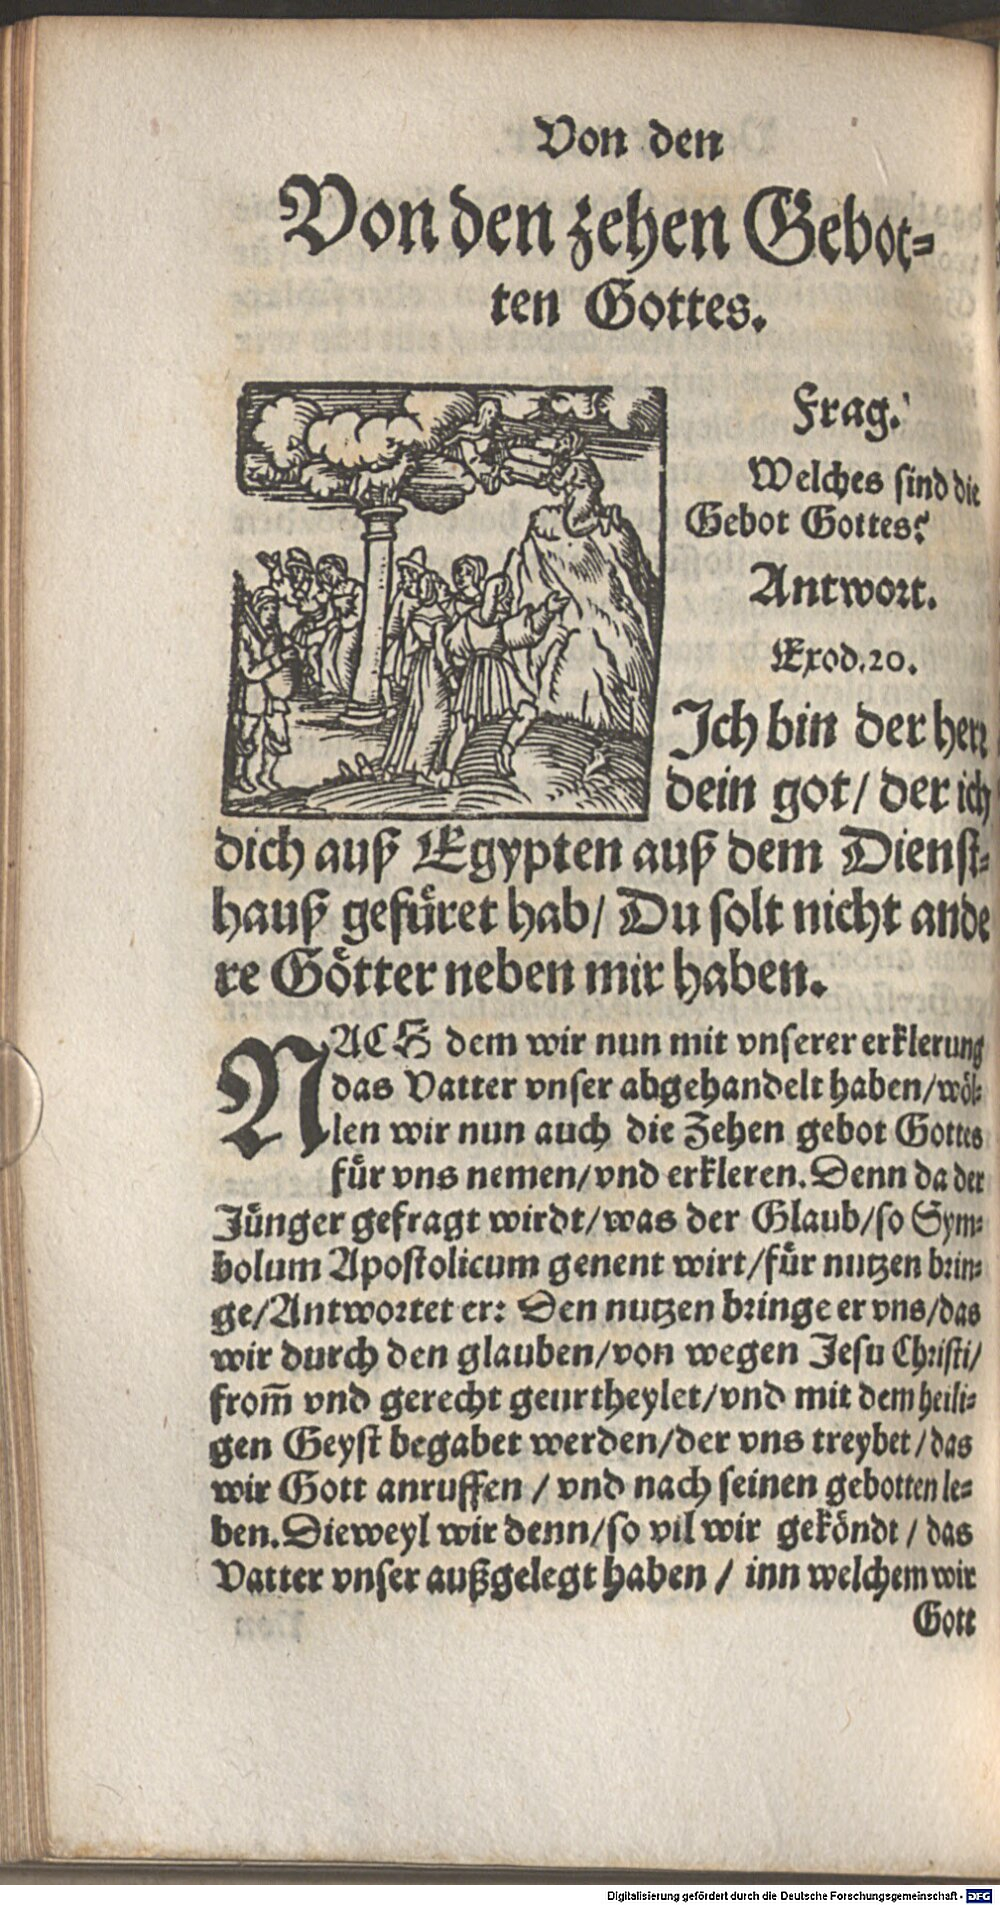 Von den
Von den zehen Gebot-
ten Gottes.
Frag.
Welches sind die
Gebot Gottes?
Antwort.
Exod. 20.
Ich bin der herr
dein got / der ich
dich auß Egypten auß dem Dienst-
hauß gefüret hab / Du solt nicht ande
re Götter neben mir haben.
NACH dem wir nun mit vnserer erklerung
das Vatter vnser abgehandelt haben / wöl-
len wir nun auch die Zehen gebot Gottes
für vns nemen / vnd erkleren. Denn da der
Jünger gefragt wirdt / was der Glaub / so Sym-
bolum Apostolicum genent wirt / für nutzen brin-
ge / Antwortet er: Den nutzen bringe er vns / das
wir durch den glauben / von wegen Jesu Christi /
from̃ vnd gerecht geurtheylet / vnd mit dem heili-
gen Geyst begabet werden / der vns treybet / das
wir Gott anruffen / vnd nach seinen gebotten le-
ben. Dieweyl wir denn / so vil wir geköndt / das
Vatter vnser außgelegt haben / inn welchem wir
Gott
Digitalisierung gefördert durch die Deutsche Forschungsgemeinschaft - DFG